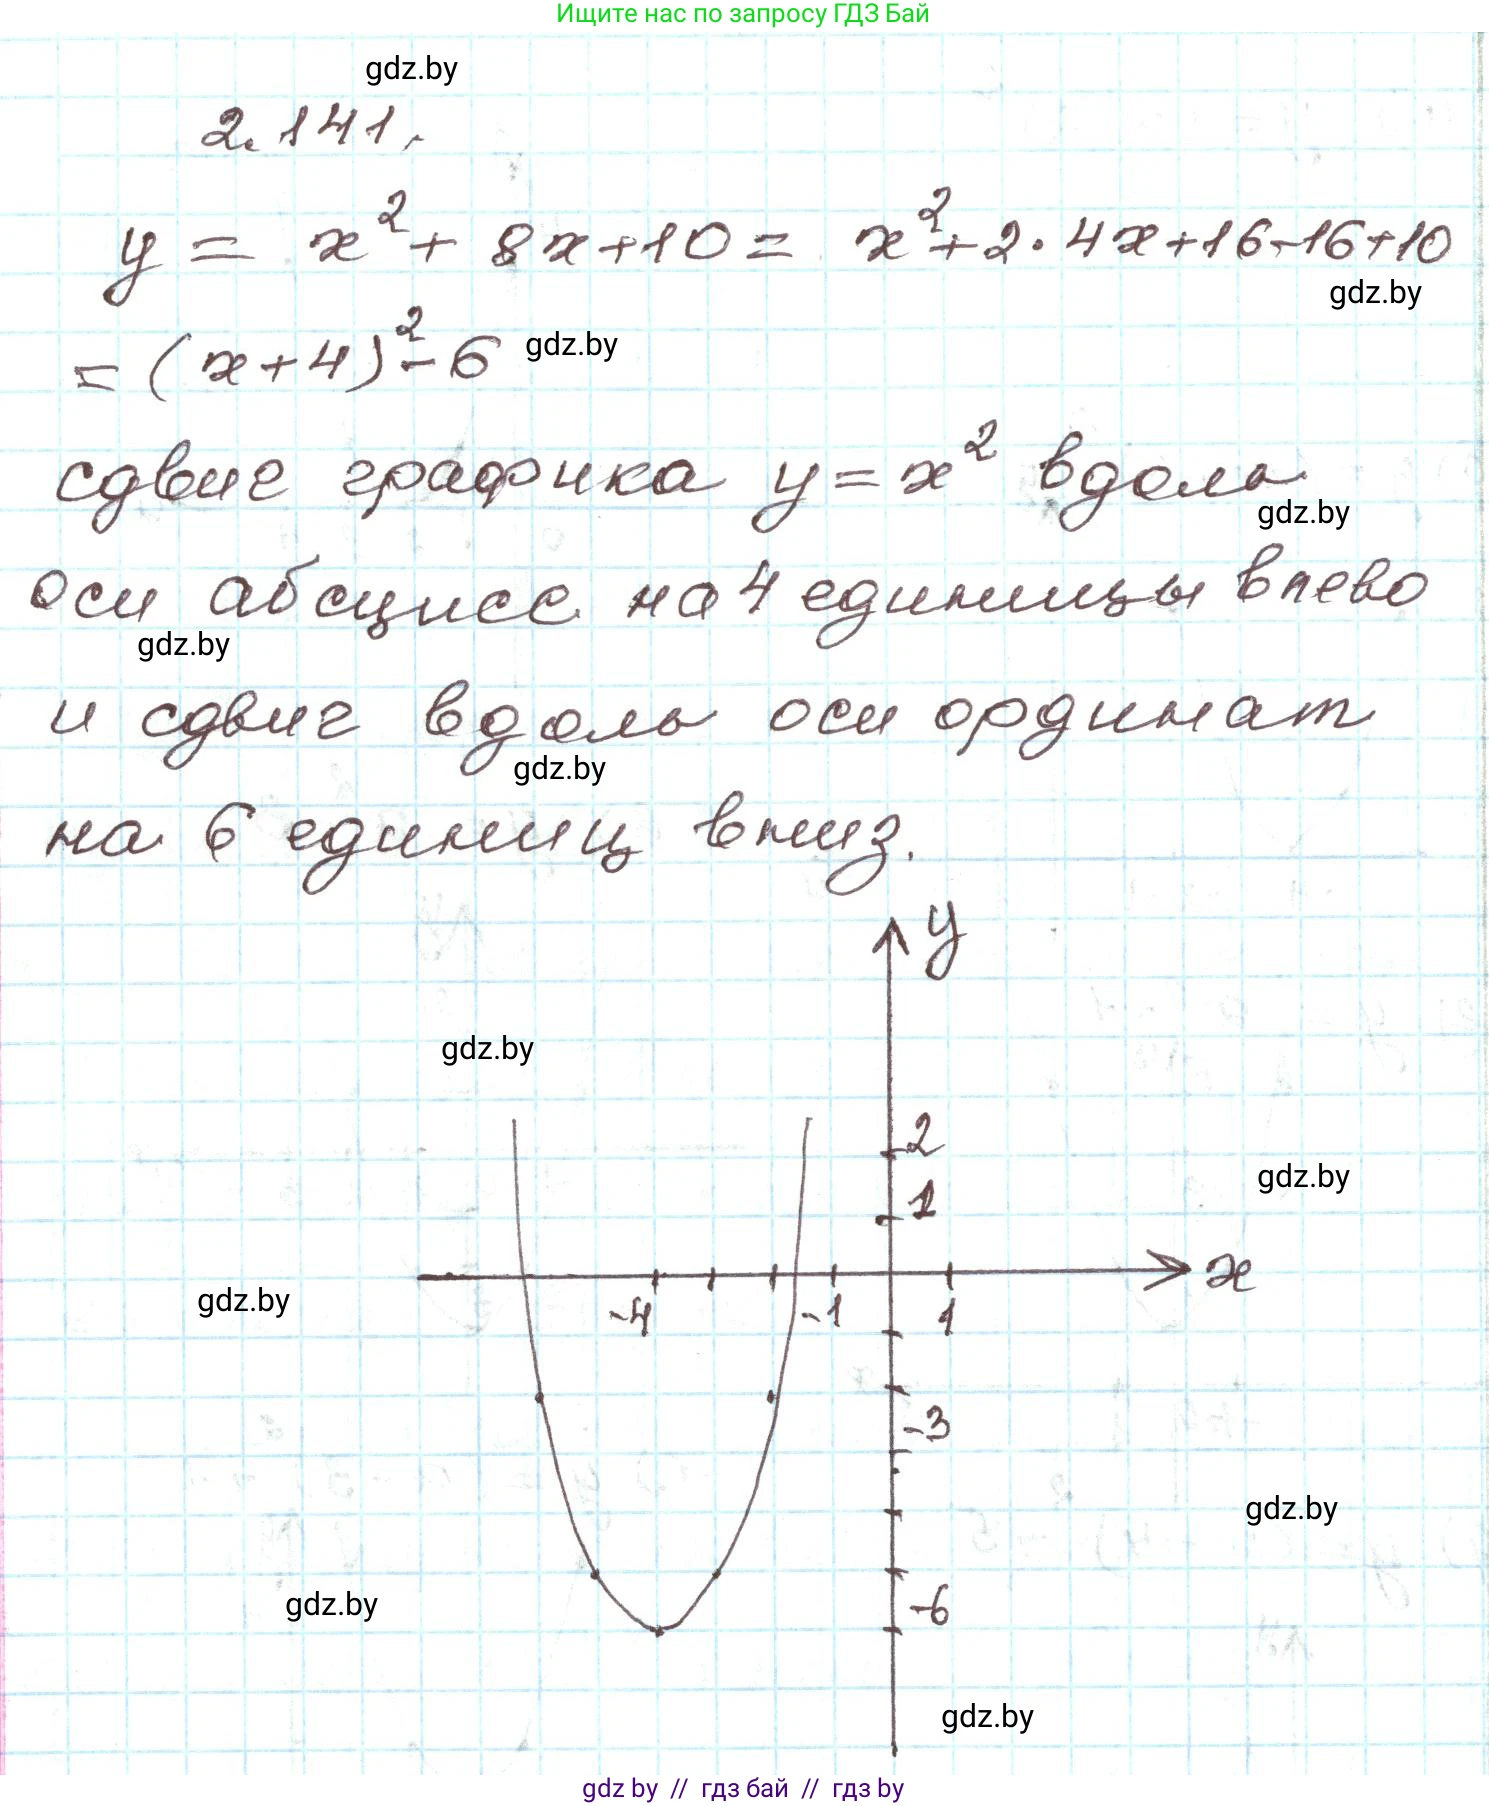 Ищите нас по запросу ГДЗ Бай
gdz.by
2.141.
y = x² + 8x+10 = x²+2·4x+16-16+10
gdz.by
= (x+4)²-6 gdz.by
сдвиг графика y=x² вдоль
gdz.by
оси абсцисс на 4 единицы влево
gdz.by
и сдвиг вдоль оси ординат
gdz.by
на 6 единиц вниз.
y
gdz.by
2
gdz.by
1
x
gdz.by
-4 -1 1
-3
gdz.by
gdz.by
-6
gdz.by
gdz by // гдз бай // гдз by